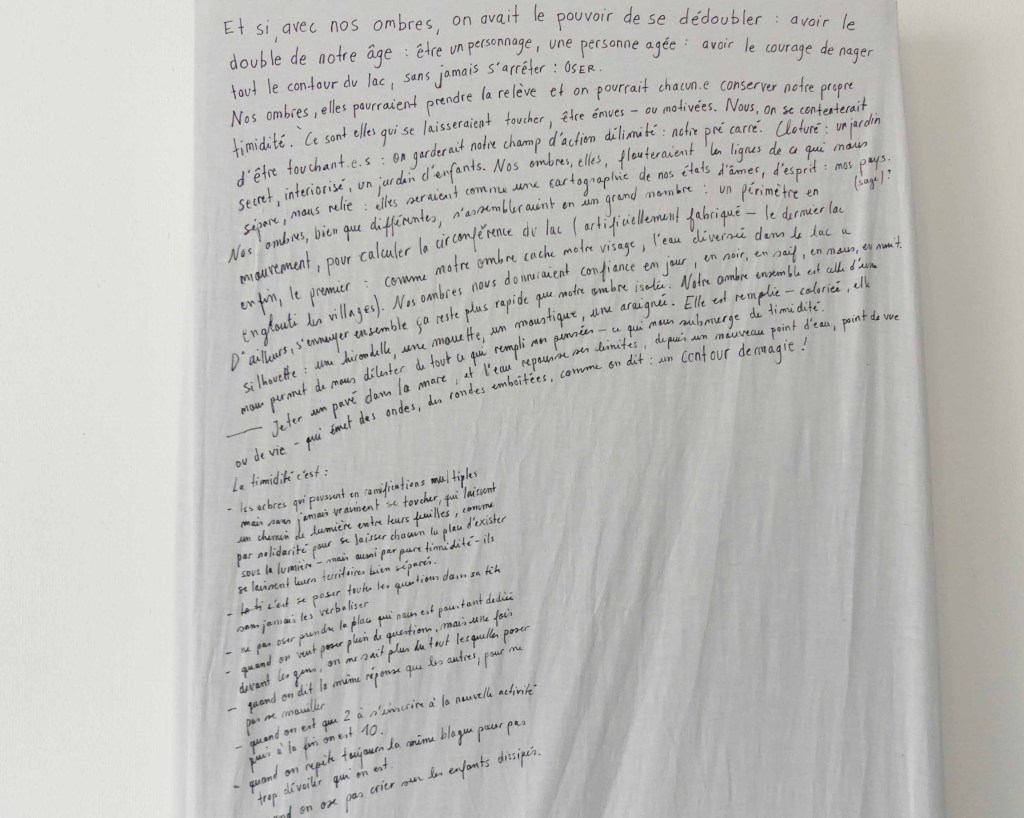 Et si, avec nos ombres, on avait le pouvoir de se dédoubler : avoir le
double de notre âge : être un personnage, une personne agée : avoir le courage de nager
tout le contour du lac, sans jamais s'arrêter : OSER.
Nos ombres, elles pourraient prendre la relève et on pourrait chacun.e conserver notre propre
timidité. Ce sont elles qui se laisseraient toucher, être émues – ou motivées. Nous, on se contenterait
d'être touchant.e.s : on garderait notre champ d'action délimité : notre pré carré. Cloturé : un jardin
secret, interiorisé, un jardin d'enfants. Nos ombres, elles, flouteraient les lignes de ce qui nous
sépare, nous relie : elles seraient comme une cartographie de nos états d'âmes, d'esprit : nos pays.
(sage)?
Nos ombres, bien que différentes, s'assembleraient en un grand nombre : un périmètre en
mouvement, pour calculer la circonférence du lac (artificiellement fabriqué – le dernier lac
enfin, le premier : comme notre ombre cache notre visage, l'eau diversée dans le lac a
englouti les villages). Nos ombres nous donneraient confiance en jour, en soir, en soif, en nous, en nuit.
D'ailleurs, s'ennuyer ensemble ça reste plus rapide que notre ombre isolée. Notre ombre ensemble est celle d'une
silhouette : une hirondelle, une mouette, un moustique, une araignée. Elle est remplie – coloriée, elle
nous permet de nous délester de tout ce qui rempli nos pensées – ce qui nous submerge de timidité.
— Jeter un pavé dans la mare, et l'eau repousse ses limites, depuis un nouveau point d'eau, point de vue
ou de vie – qui émet des ondes, des rondes emboîtées, comme on dit : un contour de magie !
La timidité c'est :
- les arbres qui poussent en ramifications multiples
mais sans jamais vraiment se toucher, qui laissent
un chemin de lumière entre leurs feuilles, comme
par solidarité pour se laisser chacun la place d'exister
sous la lumière – mais aussi par pure timidité – ils
se laissent leurs territoires bien séparés.
- c'est se poser toutes les questions dans sa tête
sans jamais les verbaliser
- ne pas oser prendre la place qui nous est pourtant dédiée
- quand on veut poser plein de questions, mais une fois
devant les gens, on ne sait plus du tout lesquelles poser
- quand on dit la même réponse que les autres, pour ne
pas se mouiller
- quand on est que 2 à s'inscrire à la nouvelle activité
puis à la fin on est 10.
- quand on répète toujours la même blague pour pas
trop dévoiler qui on est.
on ose pas crier sur les enfants dissipés.